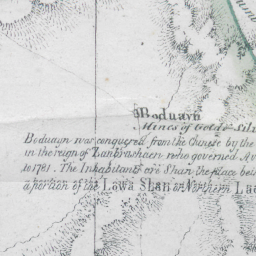 Boduayn
Mines of Gold & Silv
Boduayn was conquered from the Chinese by the
in the reign of Zanbrashaen, who governed Av
to 1781. The Inhabitants are Shan the place bel
a portion of the Lowa Shan or Northern Lao